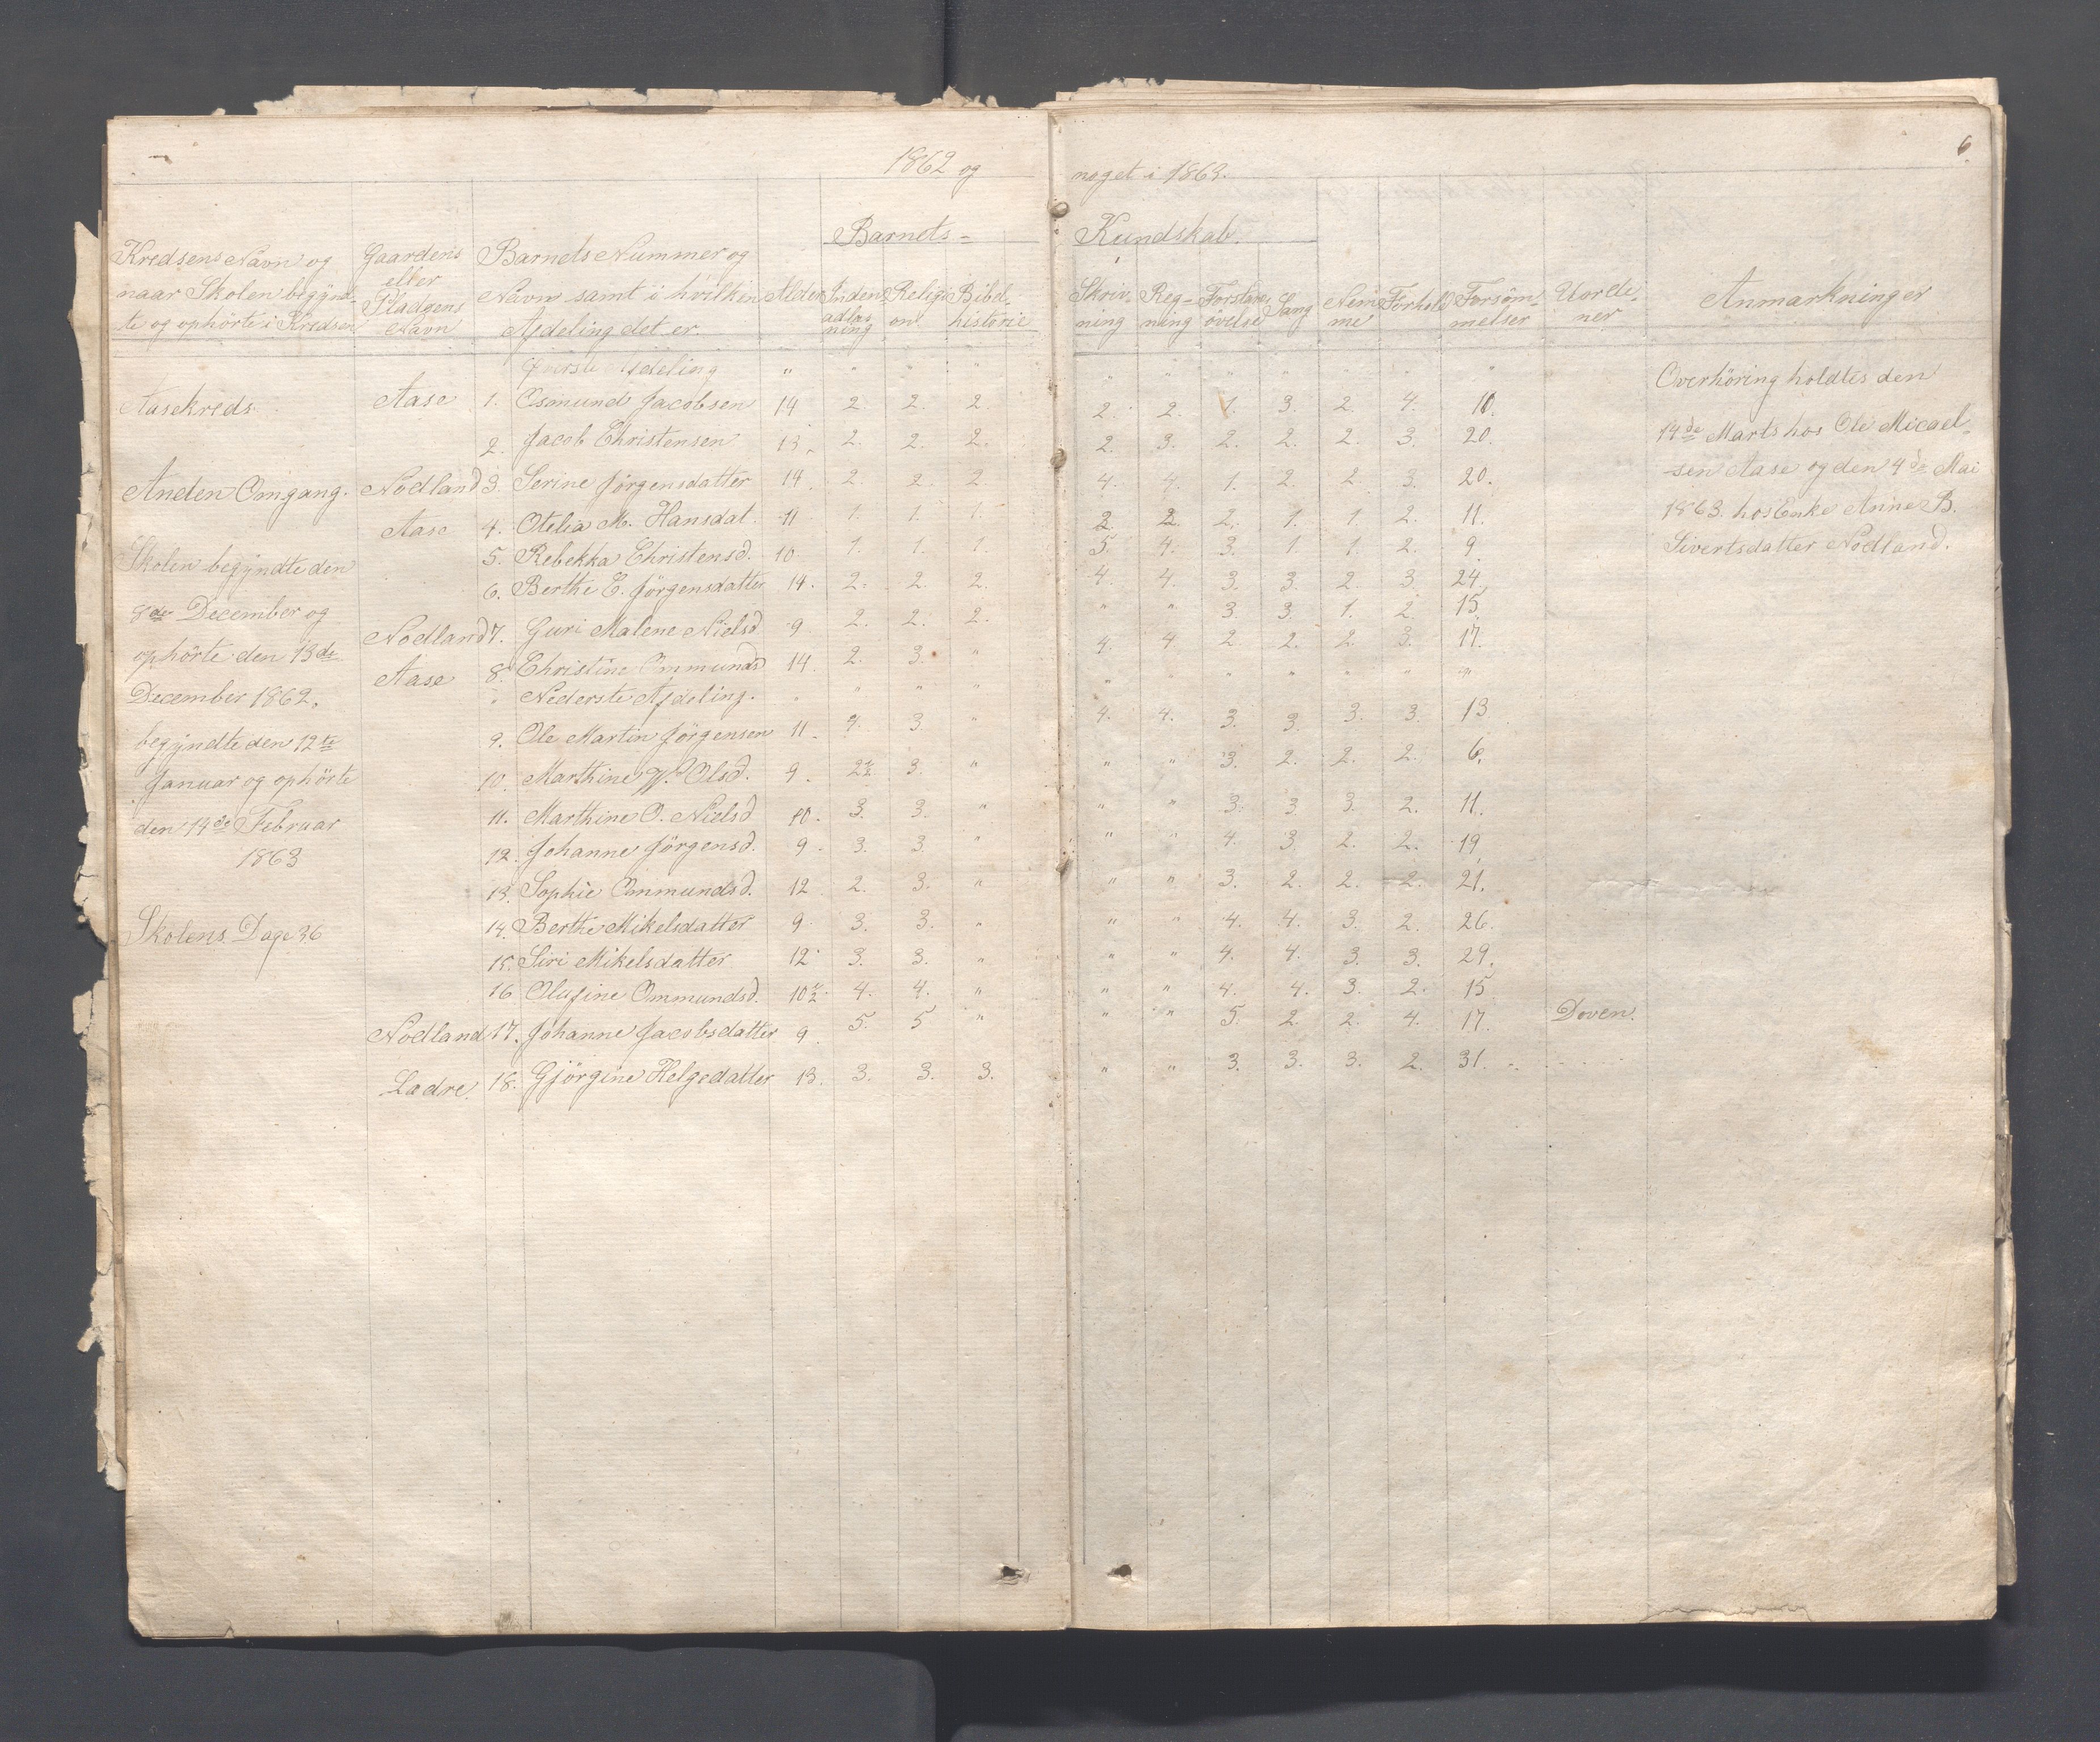 1862 og noget i 1863.
6.
Barnets- Kundskab.
Kredsens Navn og
naar Skolen begynd-
te og ophörte i Kredsen
Gaardens
eller
Pladsens
Navn
Barnets Nummer og
Navn samt i hvilken
Afdeling det er.
Alder
Inden-
adlæs
ning
Religi
on
Bibel-
historie
Skriv-
ning
Reg-
ning
Forstands
övelse
Sang
Nem
me
Forhold
Forsöm-
melser
Uorde-
ner
Anmærkninger
Første Afdeling " " " " " " " " " " "
Aasekreds. Aase 1. Osmund Jacobsen 14 2. 2. 2. 2. 2. 1. 3. 2. 4. 10.
2. Jacob Christensen 13. 2. 2. 2. 2. 3. 2. 2. 2. 3. 20.
Anden Omgang. Nodland 3. Serine Jörgensdatter 14. 2. 2. 2 4. 4. 1. 2. 2. 3. 20.
Aase 4. Otelia M. Hansdat. 11 1. 1. 1. 2. 2. 2. 1. 1. 2. 11.
5. Rebekka Christensd. 10 1. 1. 1 5. 4. 3. 1 1. 2. 9.
6. Berthe E. Jörgensdatter 14. 2. 2. 2. 4. 4. 3. 3. 2. 3. 24.
Nodland 7. Guri Malene Nielsd 9 2. 2. 2. " " 3. 3. 1. 2. 15.
Aase 8. Christine Ommunds 14. 2. 3. " 4. 4. 2 2. 2. 3. 17.
" Nederste Afdeling. " " " " " " " " " " "
9. Ole Martin Jörgensen 11. 4. 3 " 4. 4. 3. 3. 3. 3. 13
10. Marthine Olsd. 9. 2½. 3. " " " 3. 2. 2. 2. 6.
11. Marthine O. Nielsd 10. 3. 3. " " " 3. 3 3. 2. 11.
12. Johanne Jörgensd. 9. 3. 3. " " " 4. 3. 2. 2. 19
13. Sophie Ommundsd. 12 2. 3. " " " 3. 2. 2. 2. 21.
14. Berthe Mikelsdatter 9. 3. 3. " " " 4. 4. 3. 2. 26.
15. Siri Mikelsdatter 12 3. 3. " " " 4. 4. 3. 3. 29.
16 Olufine Ommundsd. 10½. 4. 4. " " " 4. 4. 3. 2. 15
Nodland 17. Johanne Jacobsdatter 9 5. 5 " " " 5. 2. 2. 4. 17. Doven.
Ladre. 18. Gjörgine Helgedatter 13. 3. 3. 3. " " 3. 3. 3. 2. 31.
Skolen begyndte den
8de December og
ophörte den 13de
December 1862.
begyndte den 12te
Januar og ophörte
den 14de Februar
1863
Skolens Dage 36
Overhöring holdtes den
14de Marts hos Ole Micael-
sen Aase og den 4de Mai
1863. hos Enke Anne B.
Sivertsdatter Nodland.